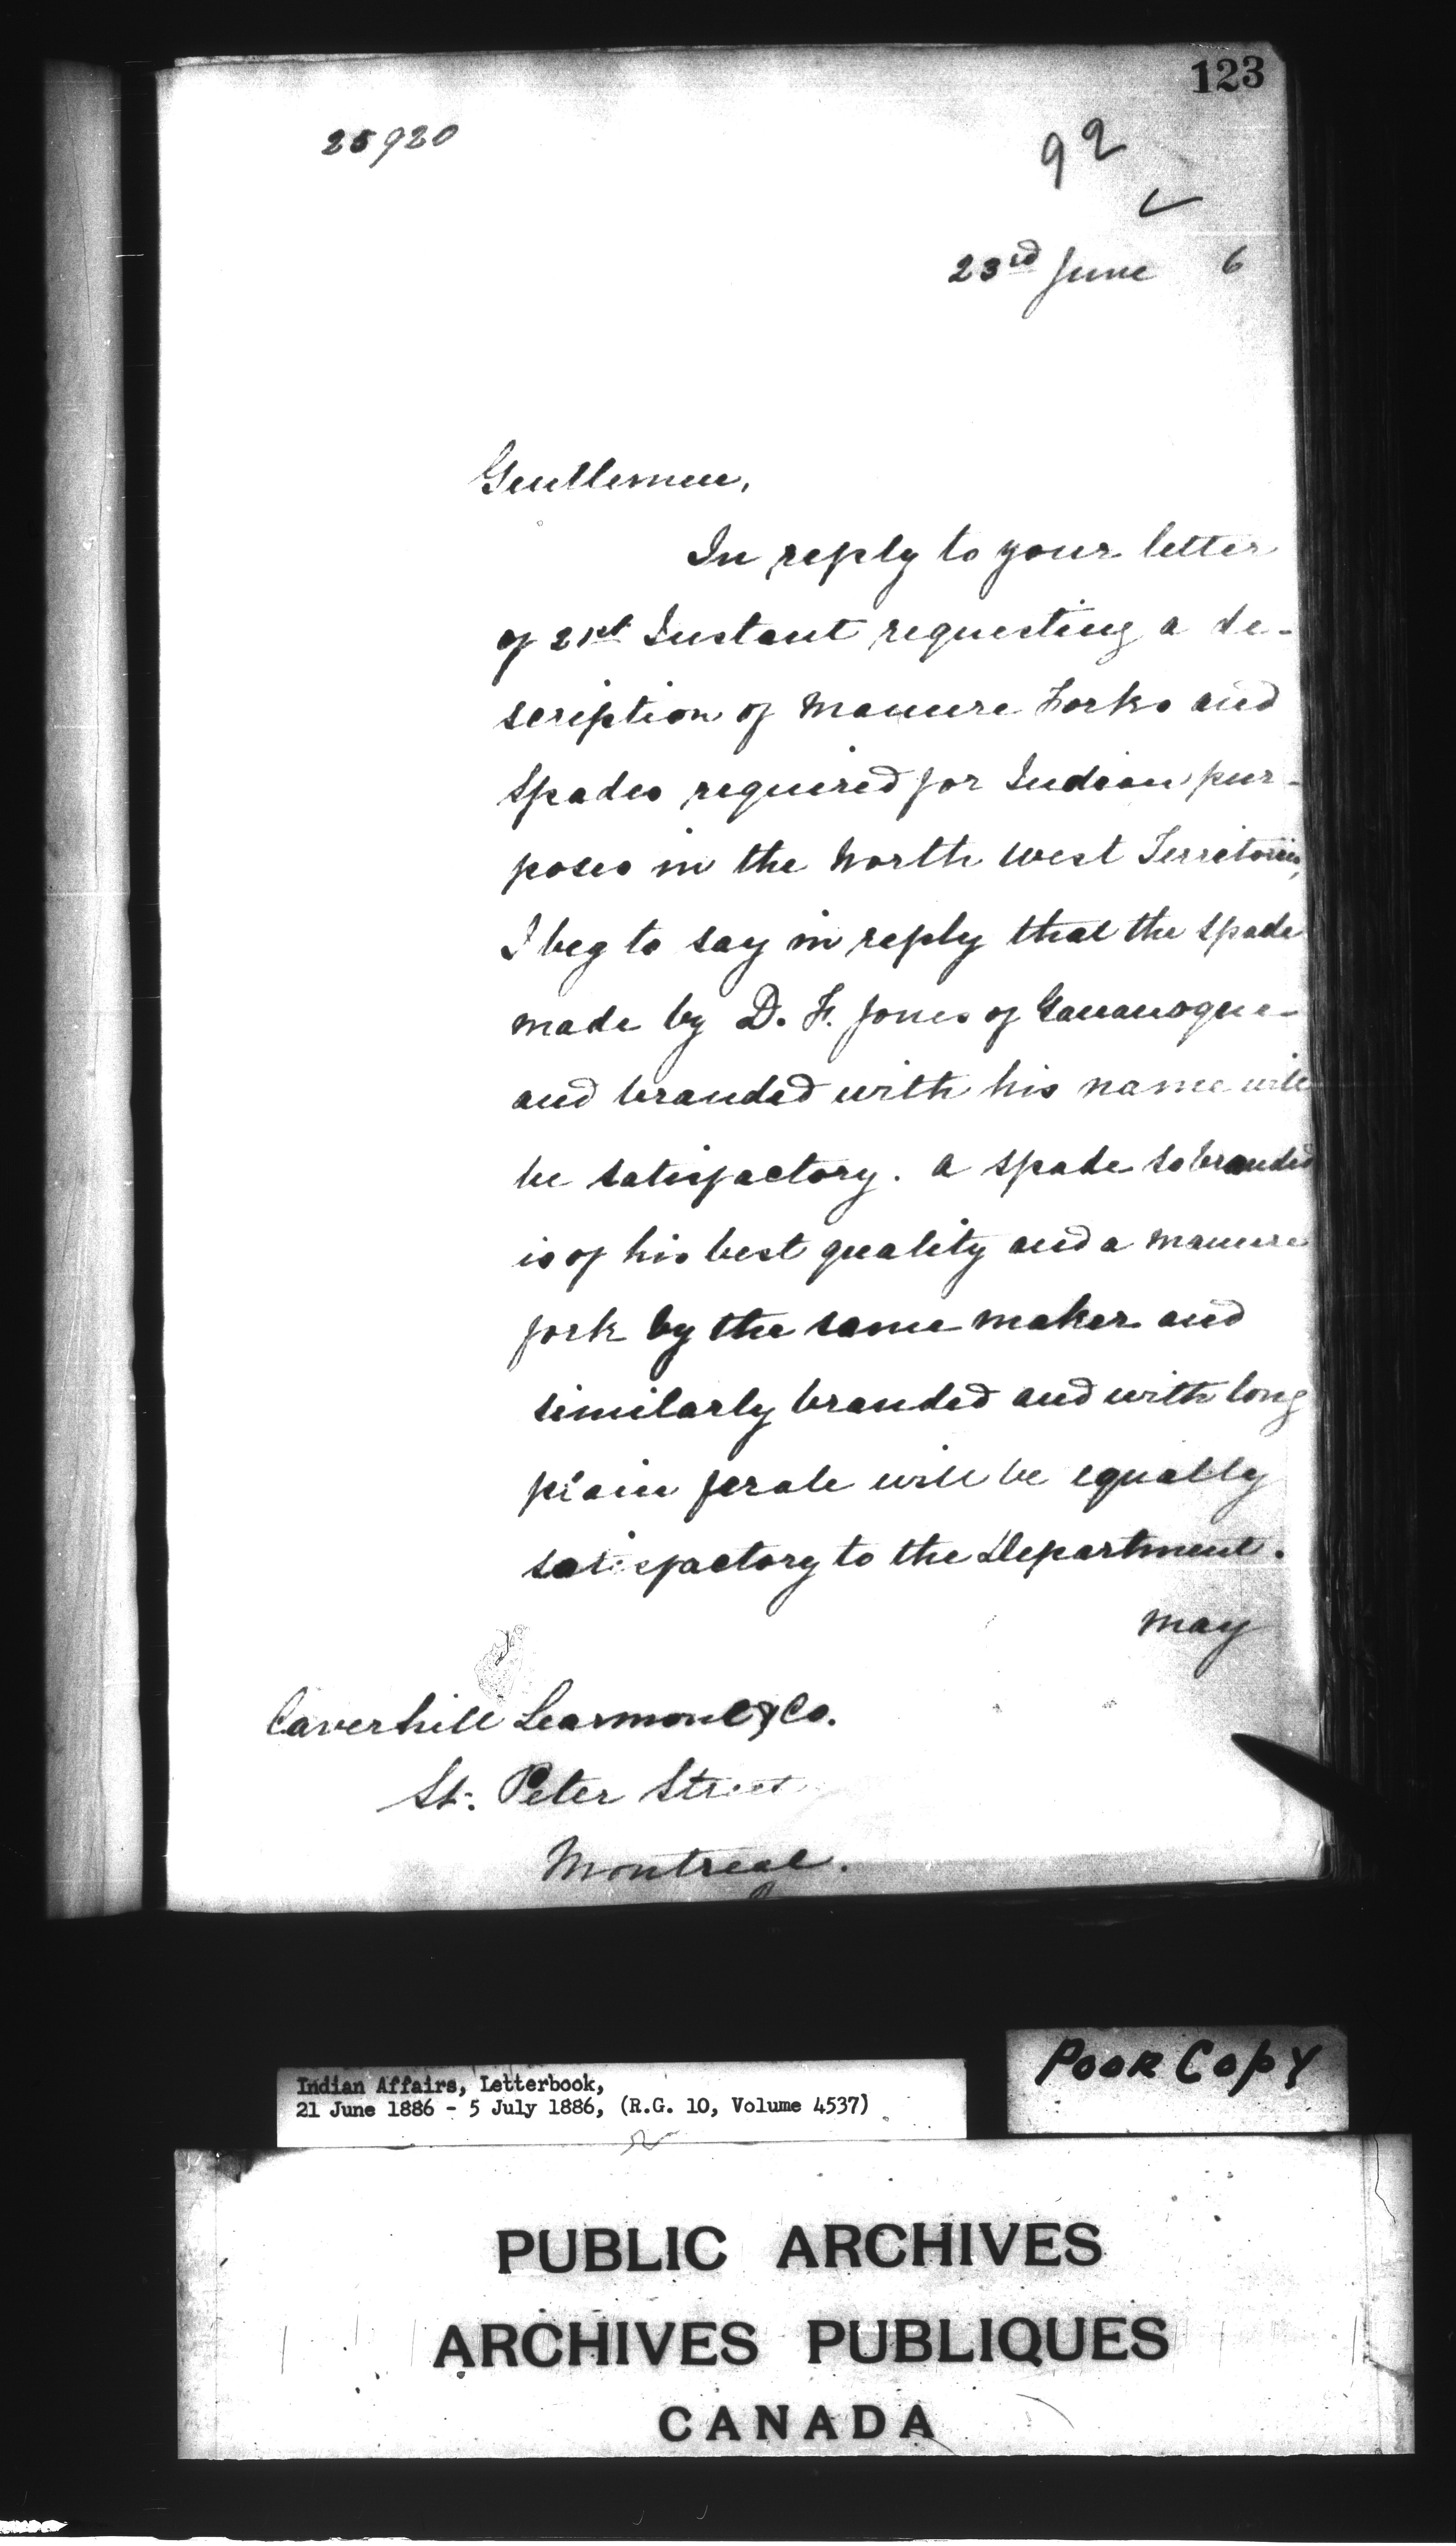 123
25920
92
23rd June 6
Gentlemen,
In reply to your letter
of 21st Instant requesting a de-
scription of Manure Forks and
Spades required for Indian pur-
poses in the North West Territories,
I beg to say in reply that the spade
made by D. F. Jones of Gananoque
and branded with his name will
be satisfactory. A spade so branded
is of his best quality and a manure
fork by the same maker and
similarly branded and with long
plain ferale will be equally
satisfactory to the Department.
May
Caverhill Learmont & Co.
St. Peter Street
Montreal.
Indian Affairs, Letterbook,
21 June 1886 - 5 July 1886, (R.G. 10, Volume 4537)
POOR COPY
PUBLIC ARCHIVES
ARCHIVES PUBLIQUES
CANADA